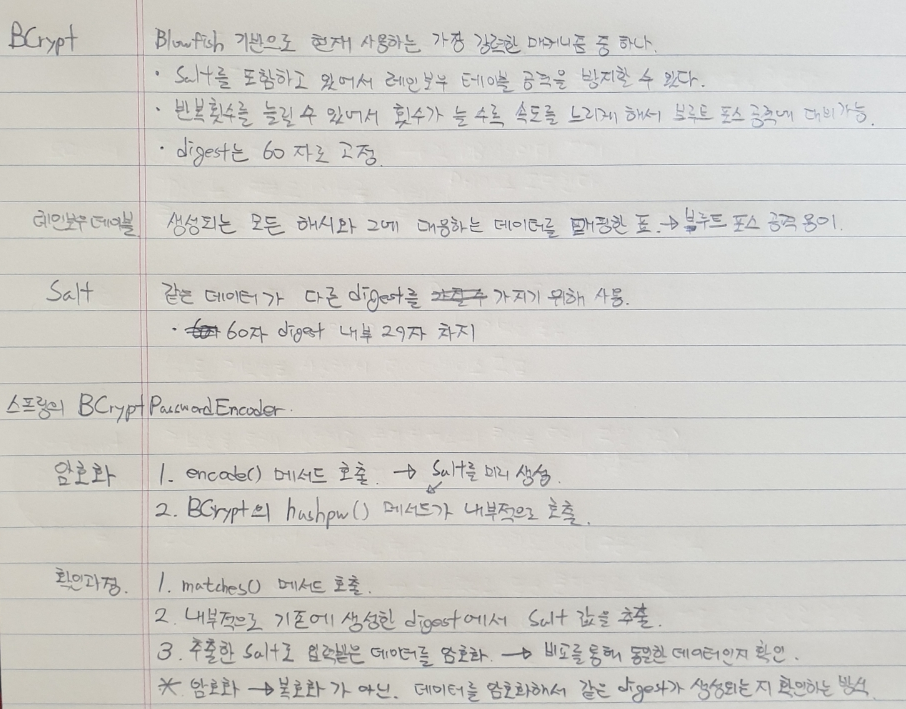 BCrypt Blowfish 기반으로 현재 사용하는 가장 강력한 매커니즘 중 하나.
· Salt를 포함하고 있어서 레인보우 테이블 공격을 방지할 수 있다.
· 반복횟수를 늘릴 수 있어서 횟수가 늘 수록 속도를 느리게 해서 브루트 포스 공격에 대비가능.
· digest는 60자로 고정.
레인보우 테이블 생성되는 모든 해시와 그에 대응하는 데이터를 매핑한 표. → 브루트 포스 공격 용이.
Salt 같은 데이터가 다른 digest를 가지기 위해 사용.
· 60자 digest 내부 29자 차지
스프링의 BCryptPasswordEncoder.
암호화 1. encode() 메서드 호출. → Salt를 미리 생성.
2. BCrypt의 hashpw() 메서드가 내부적으로 호출.
확인과정. 1. matches() 메서드 호출.
2. 내부적으로 기존에 생성한 digest에서 Salt 값을 추출.
3. 추출한 Salt로 입력받은 데이터를 암호화. → 비교를 통해 동일한 데이터인지 확인.
* 암호화 → 복호화가 아닌. 데이터를 암호화해서 같은 digest가 생성되는 지 확인하는 방식.